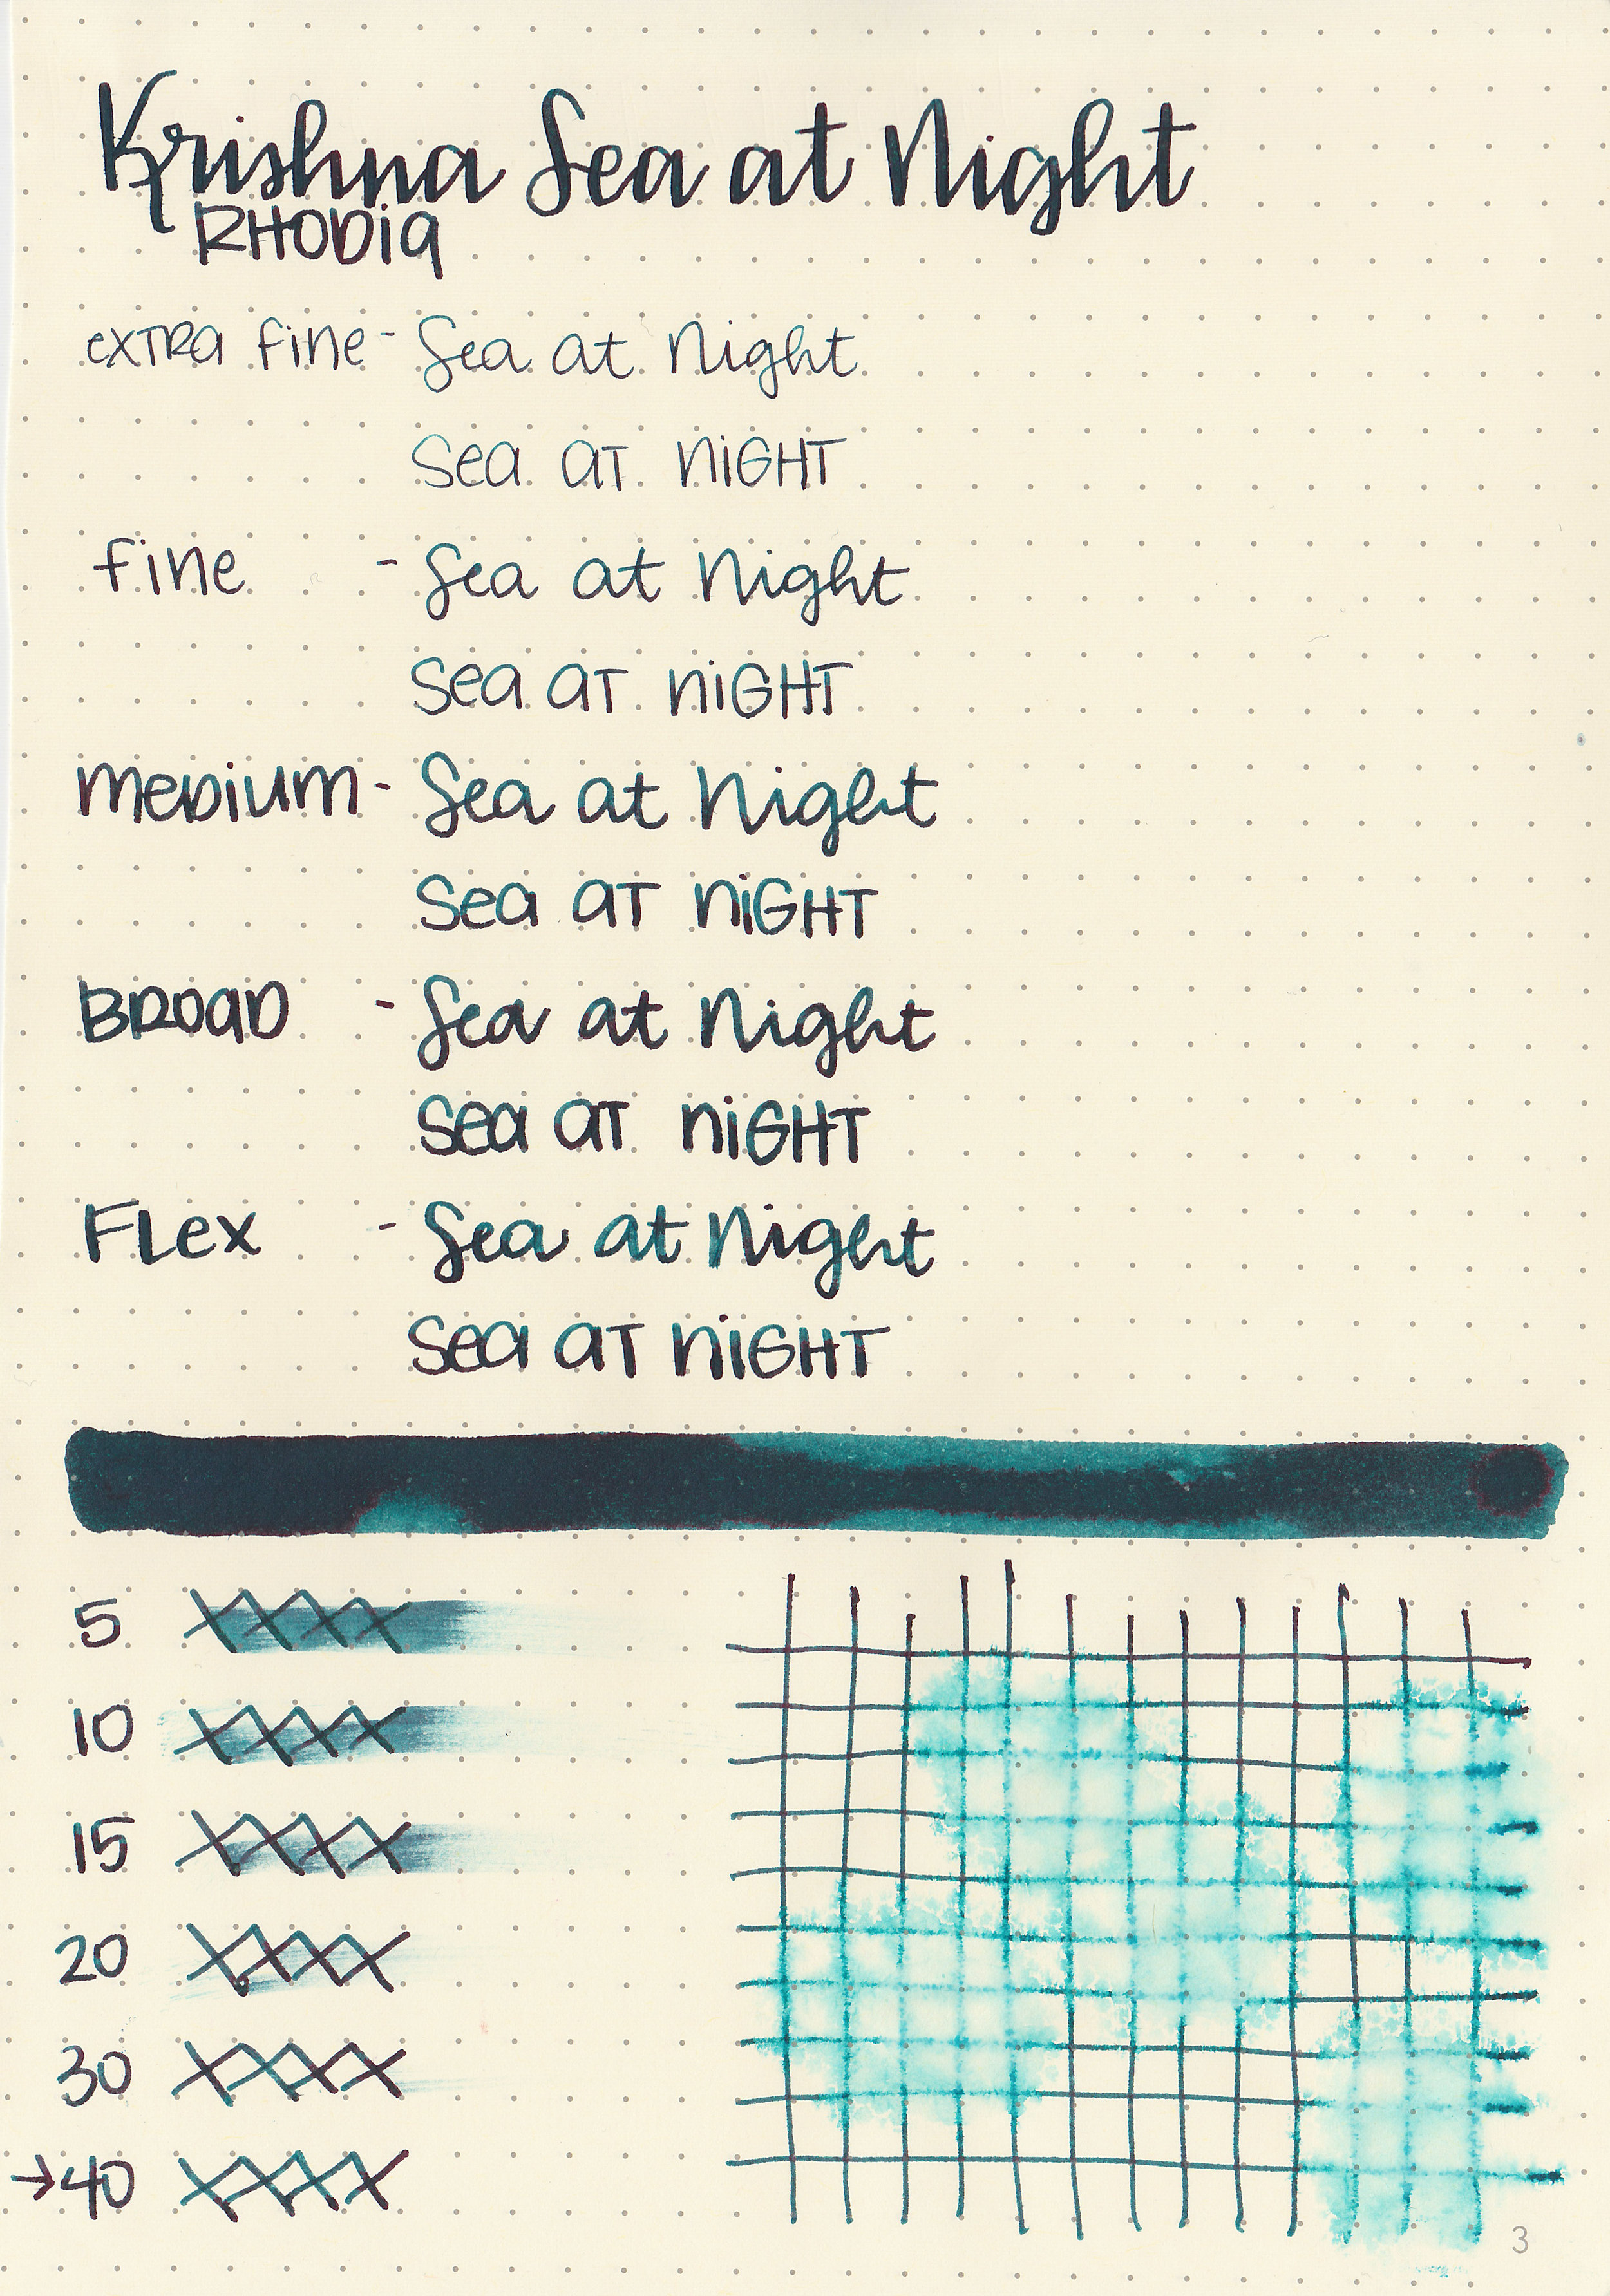 Krishna Sea at Night
RHODIA
extra fine - Sea at Night
Sea at Night
fine - Sea at Night
Sea at Night
Medium - Sea at Night
Sea at Night
Broad - Sea at Night
Sea at Night
Flex - Sea at Night
Sea at Night
5
10
15
20
30
→40
3